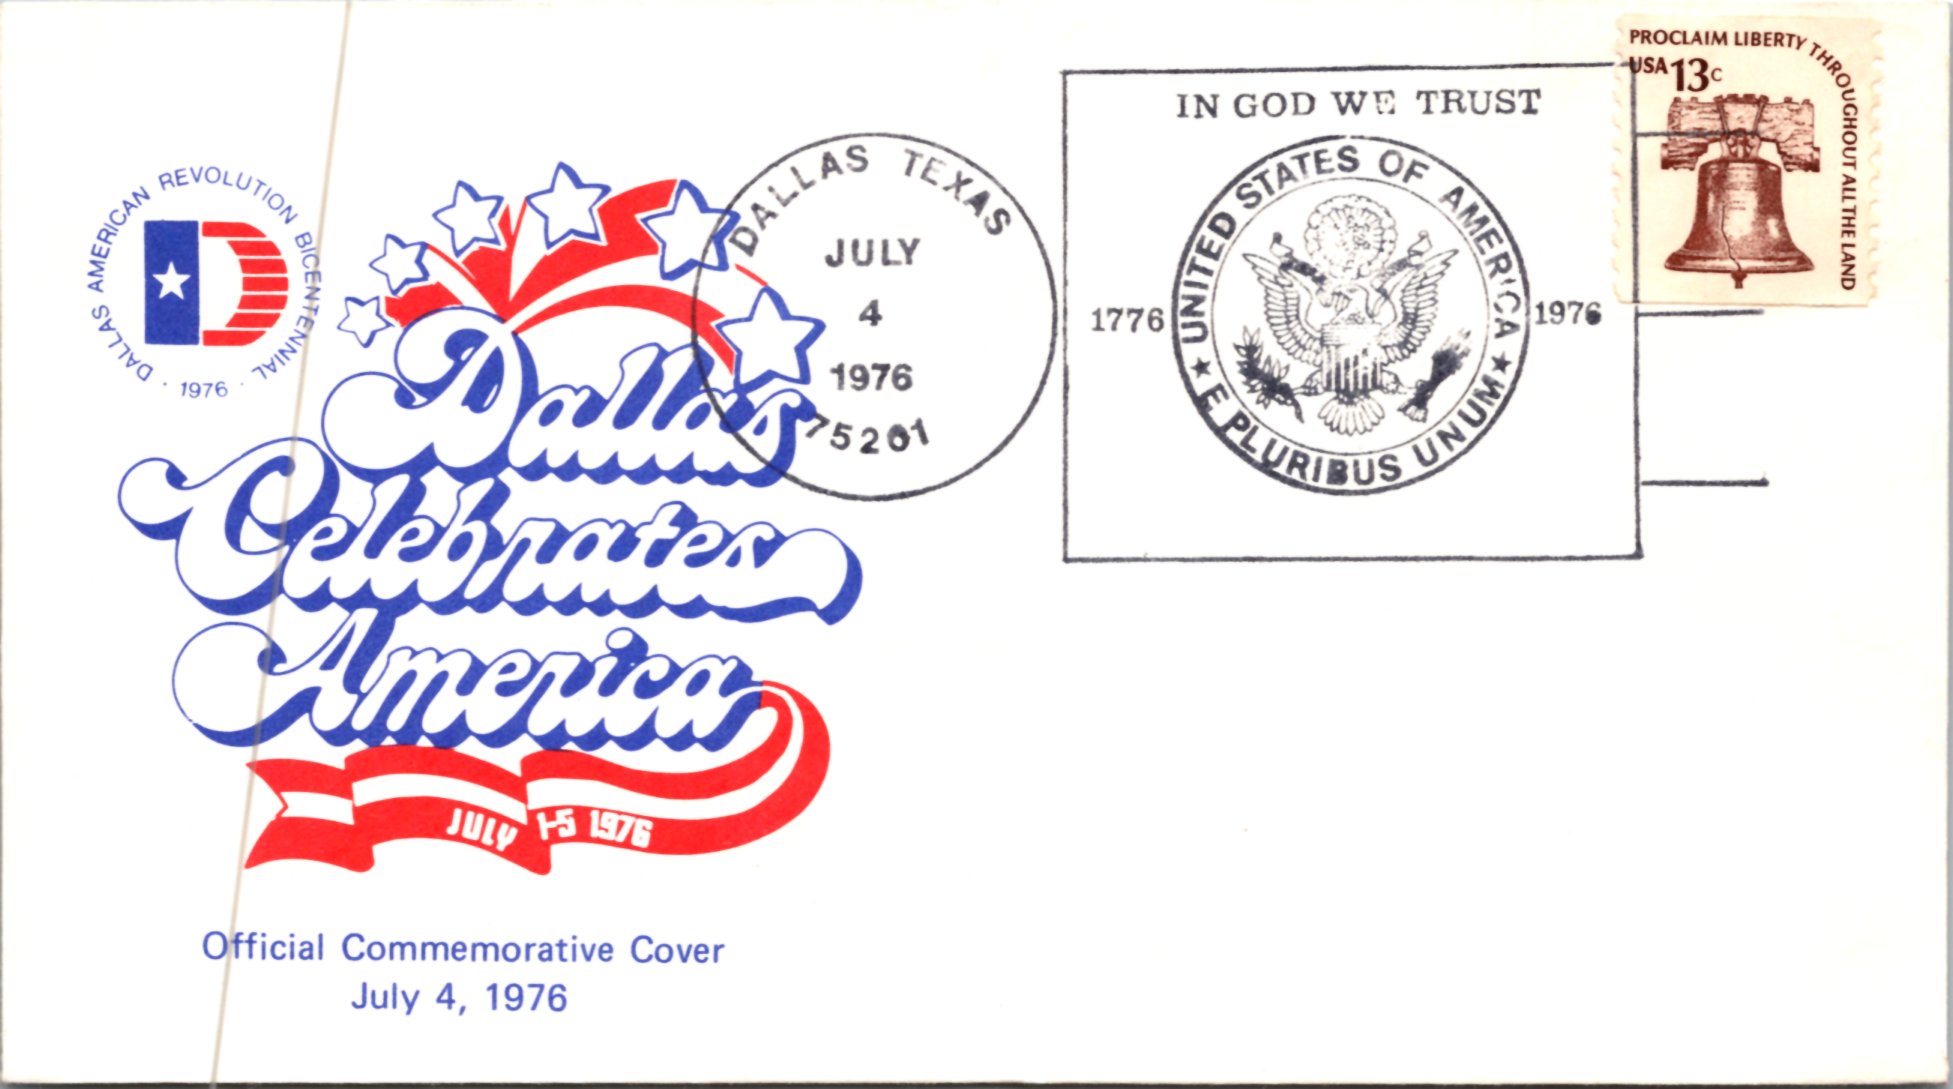 DALLAS AMERICAN REVOLUTION BICENTENNIAL
· 1976 ·
Dallas
Celebrates
America
JULY 1-5 1976
Official Commemorative Cover
July 4, 1976
DALLAS TEXAS
JULY
4
1976
75201
IN GOD WE TRUST
1776
UNITED STATES OF AMERICA
★ E PLURIBUS UNUM ★
1976
PROCLAIM LIBERTY THROUGHOUT ALL THE LAND
USA 13c